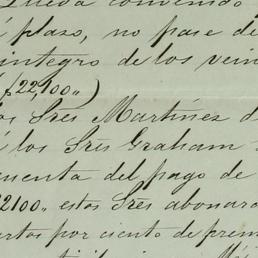 Queda convenido
plazo, no pase de
integro de los vein
($22,100„)
los Sres Martinez d
los Sres Graham
uenta del pago de
22100„ estos Sres abonara
artos por ciento de prem